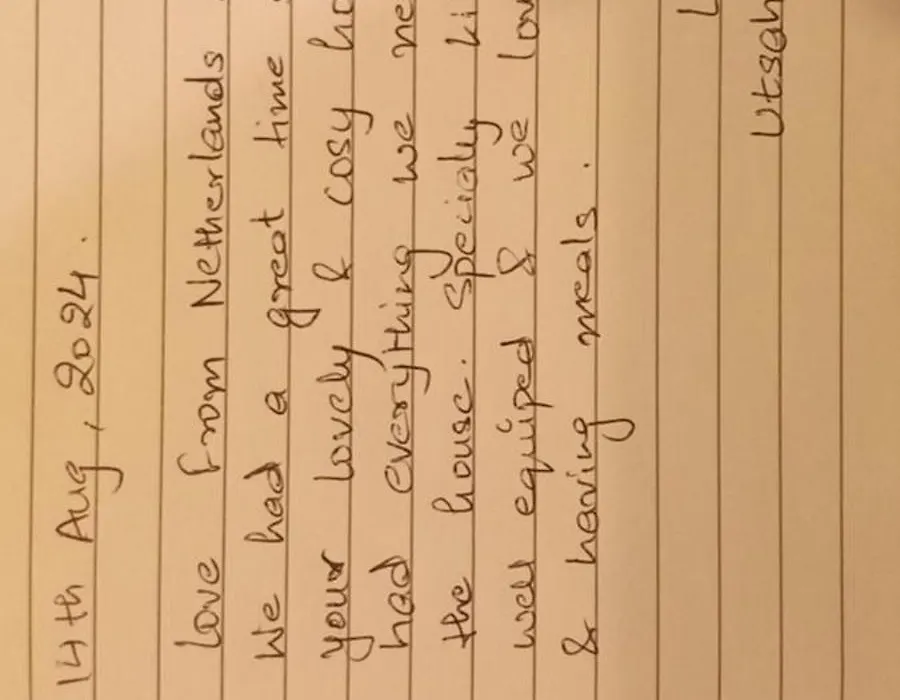 14th Aug, 2024.
Love from Netherlands
We had a great time
your lovely & cosy ho
had everything we ne
the house. Specially ki
well equiped & we lov
& having meals.
L
Utsah